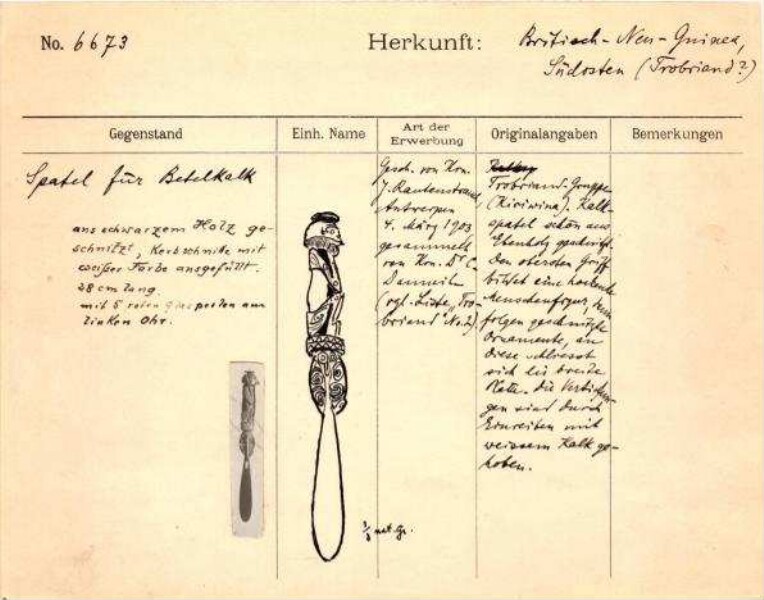 No. 6673
Herkunft:
Britisch-Neu-Guinea,
Südosten (Trobriand?)
Gegenstand
Einh. Name
Art der
Erwerbung
Originalangaben
Bemerkungen
Spatel für Betelkalk
aus schwarzem Holz ge-
schnitzt, Kerbschnitte mit
weißer Farbe ausgefüllt.
28 cm lang.
mit 5 roten Glasperlen am
linken Ohr.
Gesch. von Hrn.
J. Rautenstrauch,
Antwerpen
4. März 1903
gesammelt
von Hrn. Dr.
(vgl. Liste „Tro-
briand" No. 2).
Trobriand-Gruppe
(Kiriwina). Kalk-
spatel schön aus
Ebenholz geschnitzt.
Den obersten Griff
bildet eine hockende
Menschenfigur, dann
folgen geschnitzte
Ornamente, an
diese schliesst
sich die breite
die Vertiefun-
gen sind durch
Einreiben mit
weissem Kalk ge-
hoben.
1/3 nat. Gr.